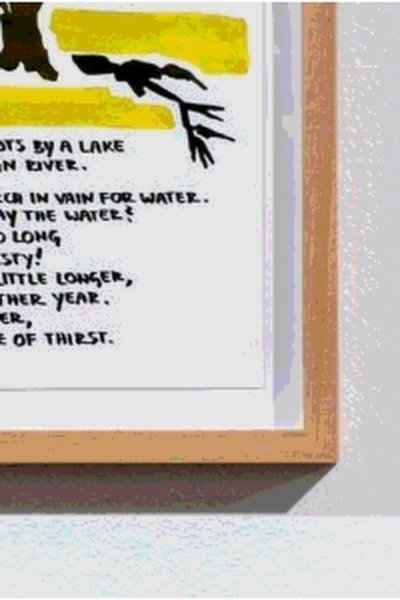 OTS BY A LAKE
N RIVER.
CH IN VAIN FOR WATER.
AY THE WATER?
O LONG
STY!
LITTLE LONGER,
THER YEAR.
ER,
E OF THIRST.